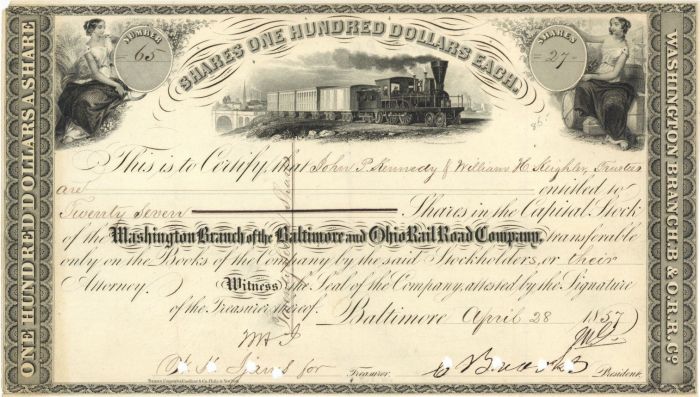 NUMBER
65
SHARES ONE HUNDRED DOLLARS EACH.
SHARES
27
ONE HUNDRED DOLLARS A SHARE
WASHINGTON BRANCH B & O. R. R. Co.
This is to Certify, that John P. Kennedy & William H. Keighler, Trustees
are entitled to
Twenty Seven Shares in the Capital Stock
of the Washington Branch of the Baltimore and Ohio Rail Road Company, transferable
only on the Books of the Company by the said Stockholders, or their
Attorney. Witness the Seal of the Company, attested by the Signature
of the Treasurer thereof. Baltimore April 28 1857
for Treasurer. President.